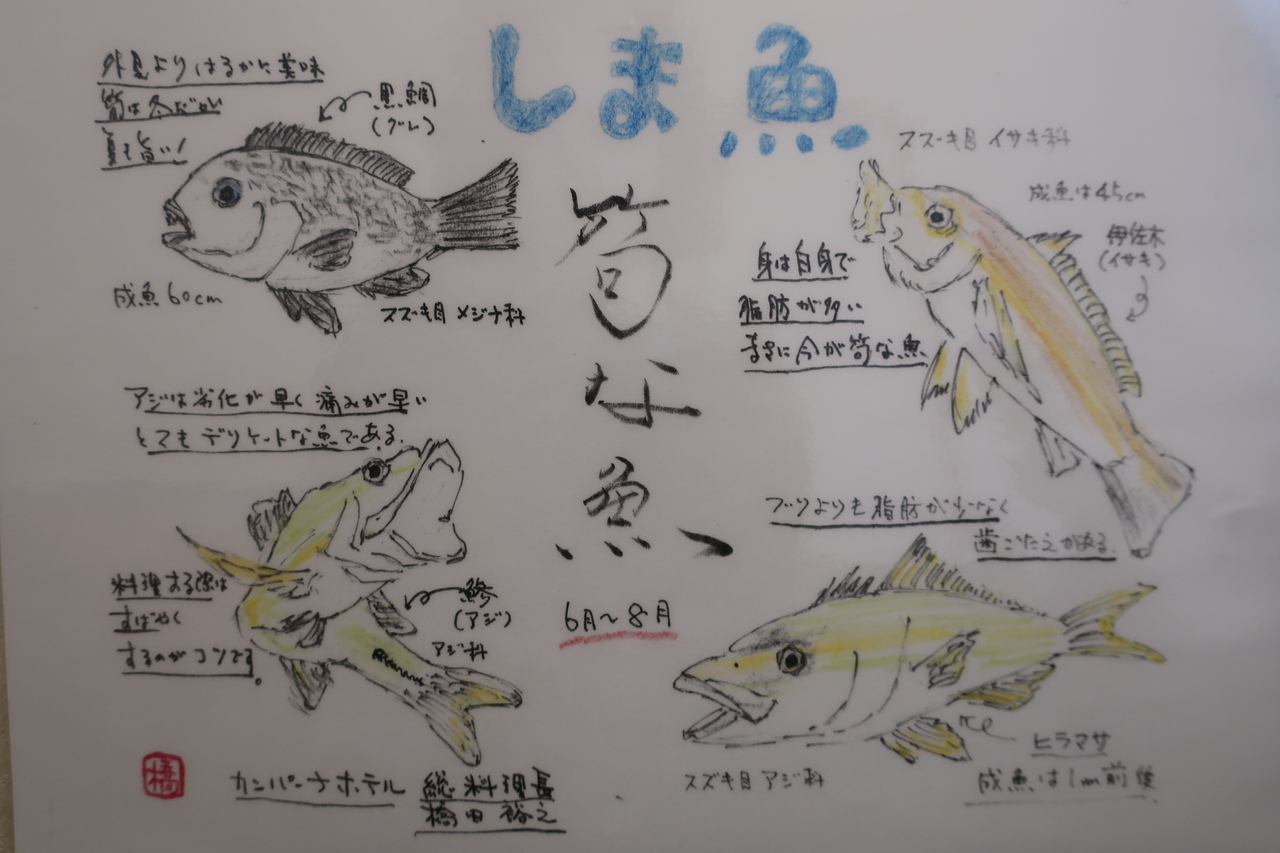 しま魚
筍な魚
6月〜8月
外見よりはるかに美味
筍は冬だが
夏も旨い!
黒鯛
(グレ)
成魚60cm
スズキ目 メジナ科
スズキ目 イサキ科
成魚は45cm
伊佐木
(イサキ)
身は白身で
脂肪が多い
まさに今が筍な魚
アジは劣化が早く痛みが早い
とてもデリケートな魚である.
料理する際は
すばやく
するのがコツです。
鯵
(アジ)
アジ科
ブリよりも脂肪が少なく
歯ごたえがある.
ヒラマサ
成魚は1m前後
スズキ目アジ科
橋
カンパーナホテル 総料理長
橋田 裕之